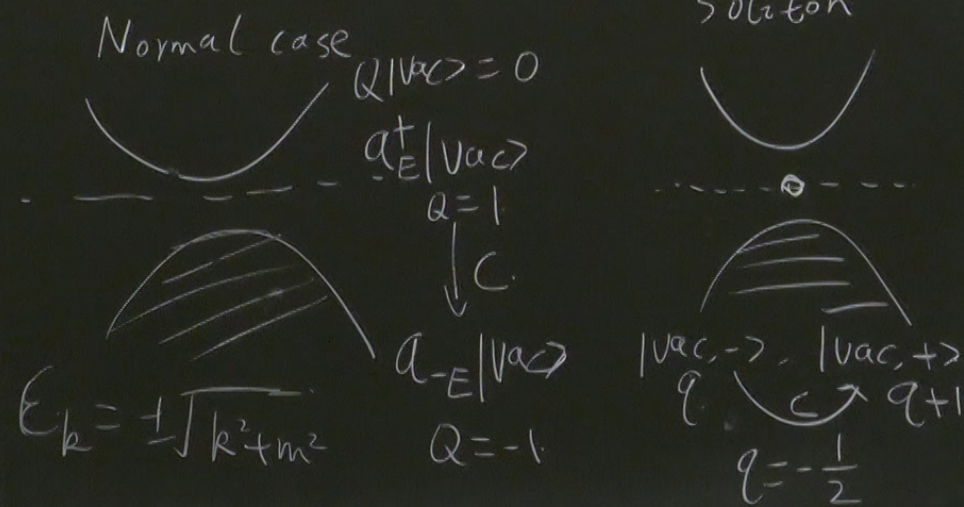 Normal case
Q|Vac> = 0
a†_E|Vac>
Q = 1
C.
a_{-E}|Vac>
Q = -1.
ε_k = ±√(k²+m²)
Soliton
|Vac,->, |Vac,+>
q C q+1
q = -1/2